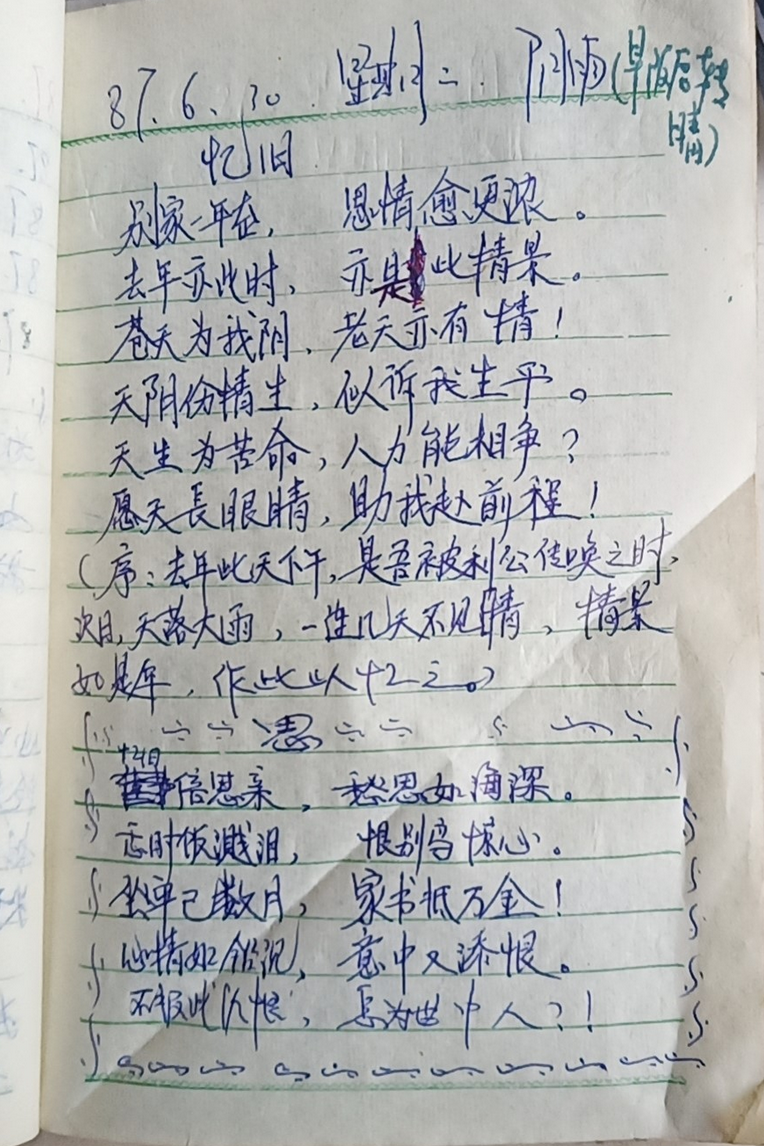 87.6.30 星期二. 阴雨(早饭后转晴)
忆旧
别家一年在, 思情愈更浓。
去年亦此时、亦是此情景。
苍天为我阴、老天亦有情!
天阴份情生,似诉我生平。
天生为苦命,人力能相争?
愿天長眼睛,助我赴前程!
(序:去年此天下午,是吾被利公传唤之时,
次日,天落大雨,一连几天不见晴、情景
如是年,作此以忆之。)
思
忆旧倍思亲,愁思如海深。
时饭溅泪, 恨别鸟惊心。
坐牢已数月, 家书抵万金!
心情如铅沉, 意中又添恨。
不报此仇恨, 怎为世中人?!